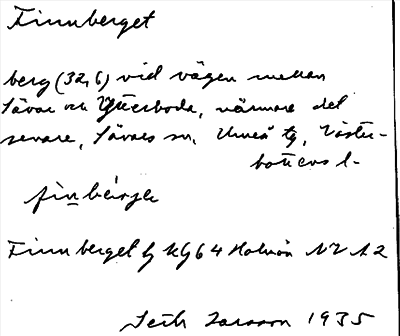 Finnberget
berg (32,6) vid vägen mellan
Sävar och Ytterboda, närmare det
senare, Sävars sn. Umeå tg, Väster-
bottens l.
finbärgk
Finnberget bg kg 64 Holmön NV A2
Seth Larsson 1935